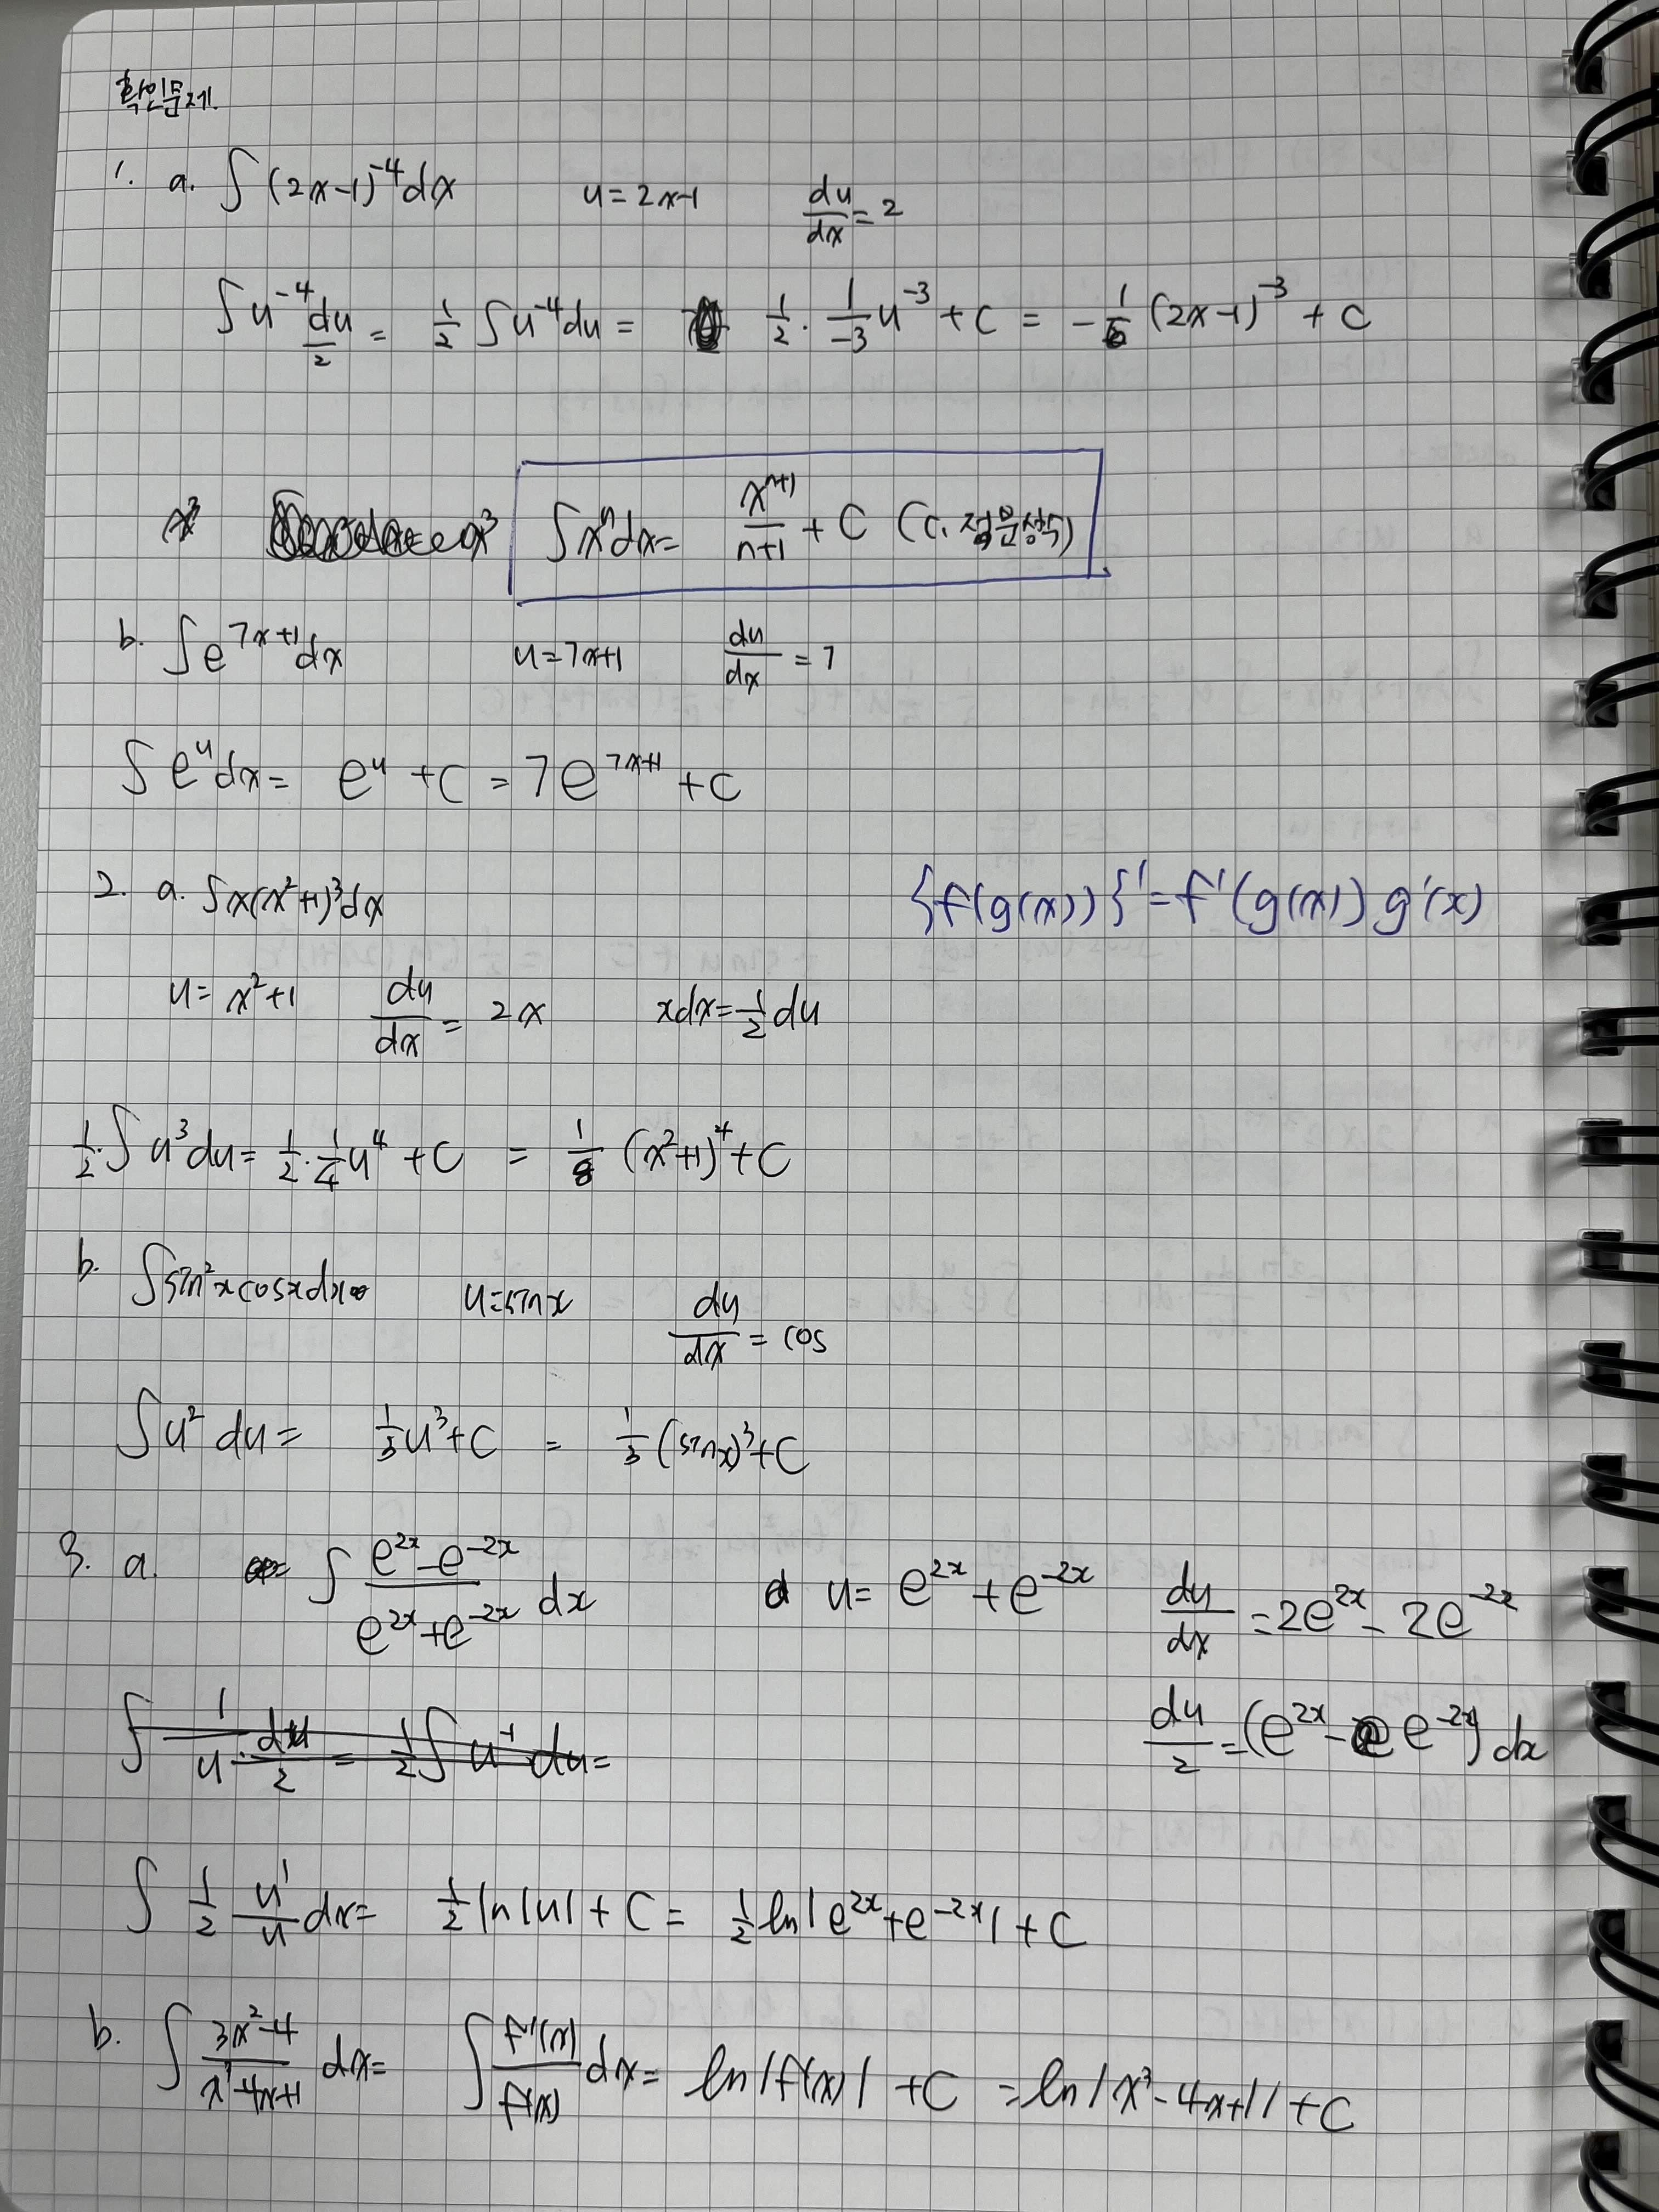 확인문제.
1. a. ∫(2x-1)^-4 dx u=2x-1 du/dx=2
∫u^-4 du/2 = 1/2 ∫u^-4 du = 1/2 · 1/-3 u^-3 + C = -1/6 (2x-1)^-3 + C
x³ x³ ∫x^n dx = x^(n+1)/(n+1) + C (C. 적분상수)
b. ∫e^(7x+1) dx u=7x+1 du/dx=7
∫e^u dx = e^u + C = 7e^(7x+1) + C
2. a. ∫x(x²+1)³dx {f(g(x))}'=f'(g(x))g'(x)
u=x²+1 du/dx = 2x xdx=1/2 du
1/2·∫u³du = 1/2·1/4 u⁴ + C = 1/8 (x²+1)⁴+C
b. ∫sin²x cosx dx u=sinx du/dx = cos
∫u² du = 1/3 u³+C = 1/3 (sinx)³+C
3. a. ∫ (e^2x - e^-2x)/(e^2x + e^-2x) dx u= e^2x + e^-2x du/dx = 2e^2x - 2e^-2x
∫ 1/u · du/2 = 1/2 ∫u^-1 du = du/2 = (e^2x - e^-2x) dx
∫ 1/2 u'/u dx = 1/2 ln|u| + C = 1/2 ln|e^2x + e^-2x| + C
b. ∫ (3x²-4)/(x³-4x+1) dx = ∫ f'(x)/f(x) dx = ln|f(x)| + C = ln|x³-4x+1| + C